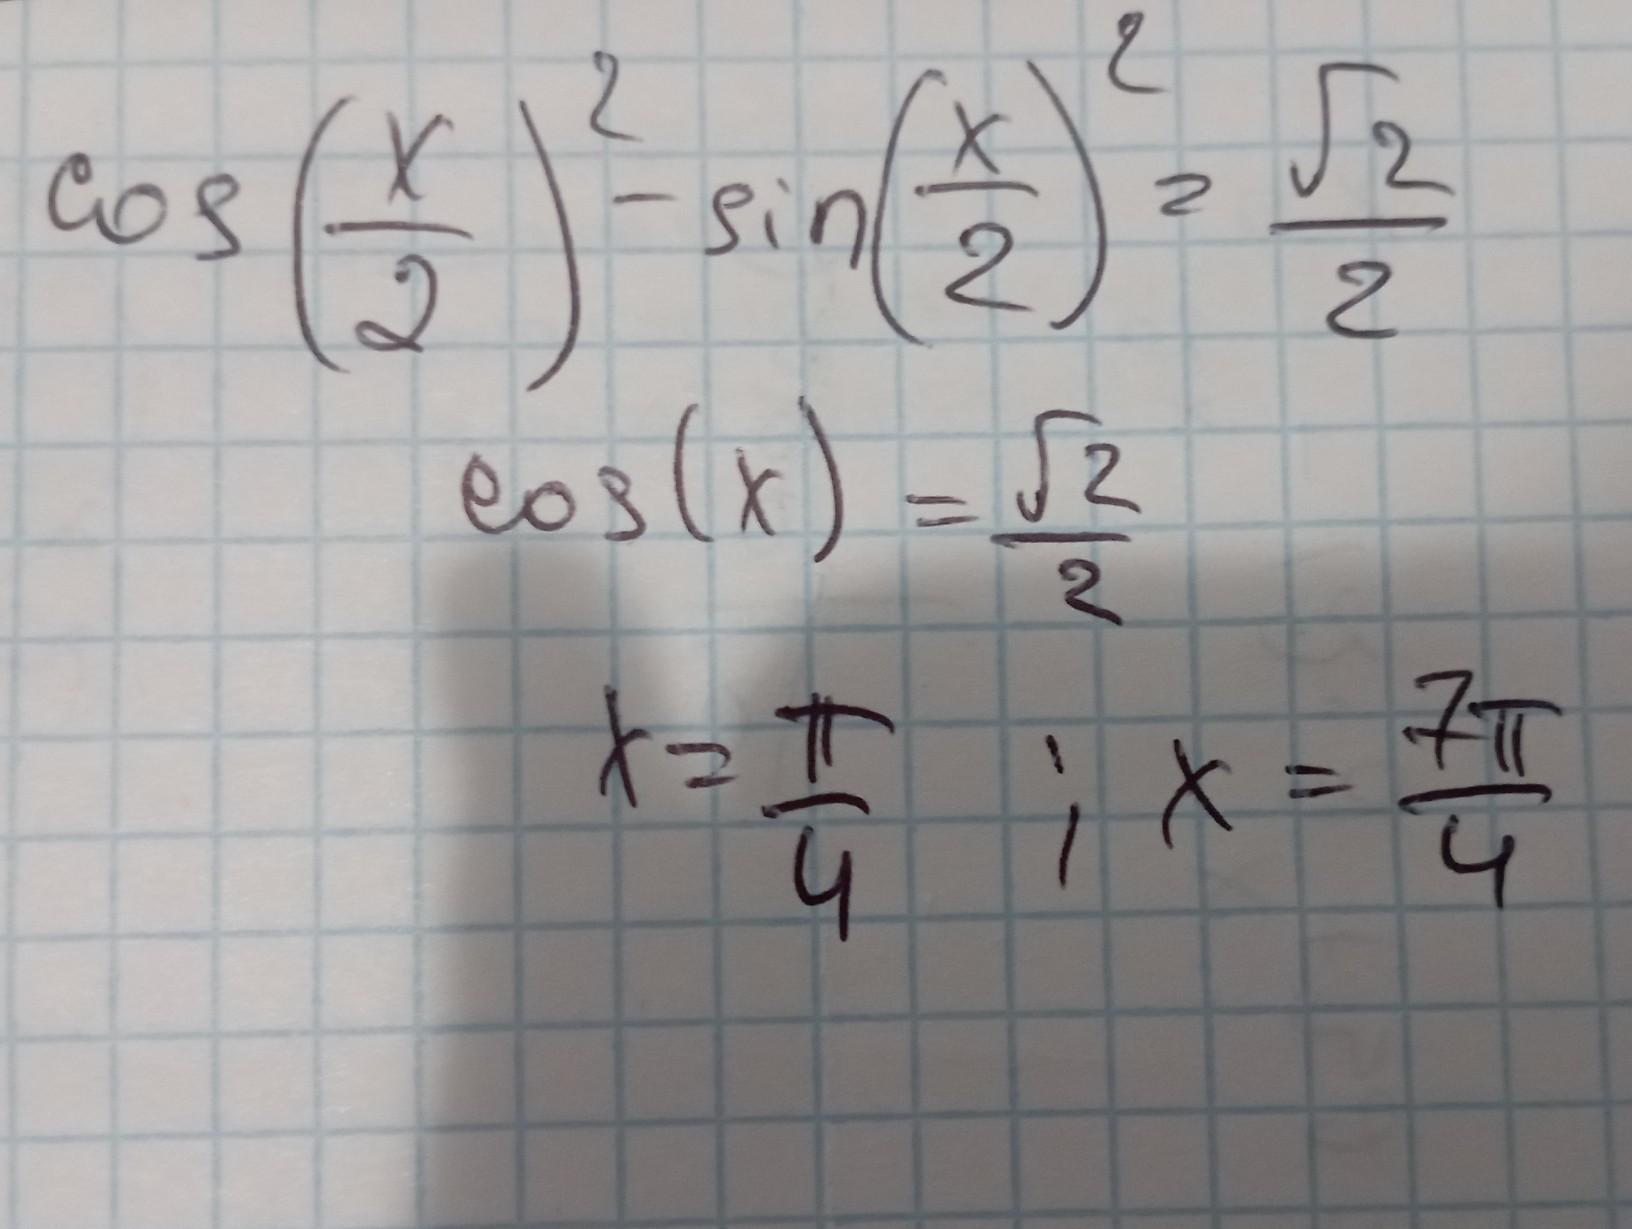 cos(x/2)² - sin(x/2)² = √2/2
cos(x) = √2/2
x = π/4 ; x = 7π/4